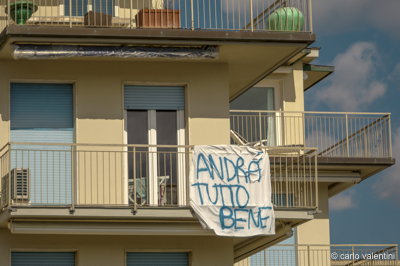 ANDRÀ
TUTTO
BENE
© carlo valentini